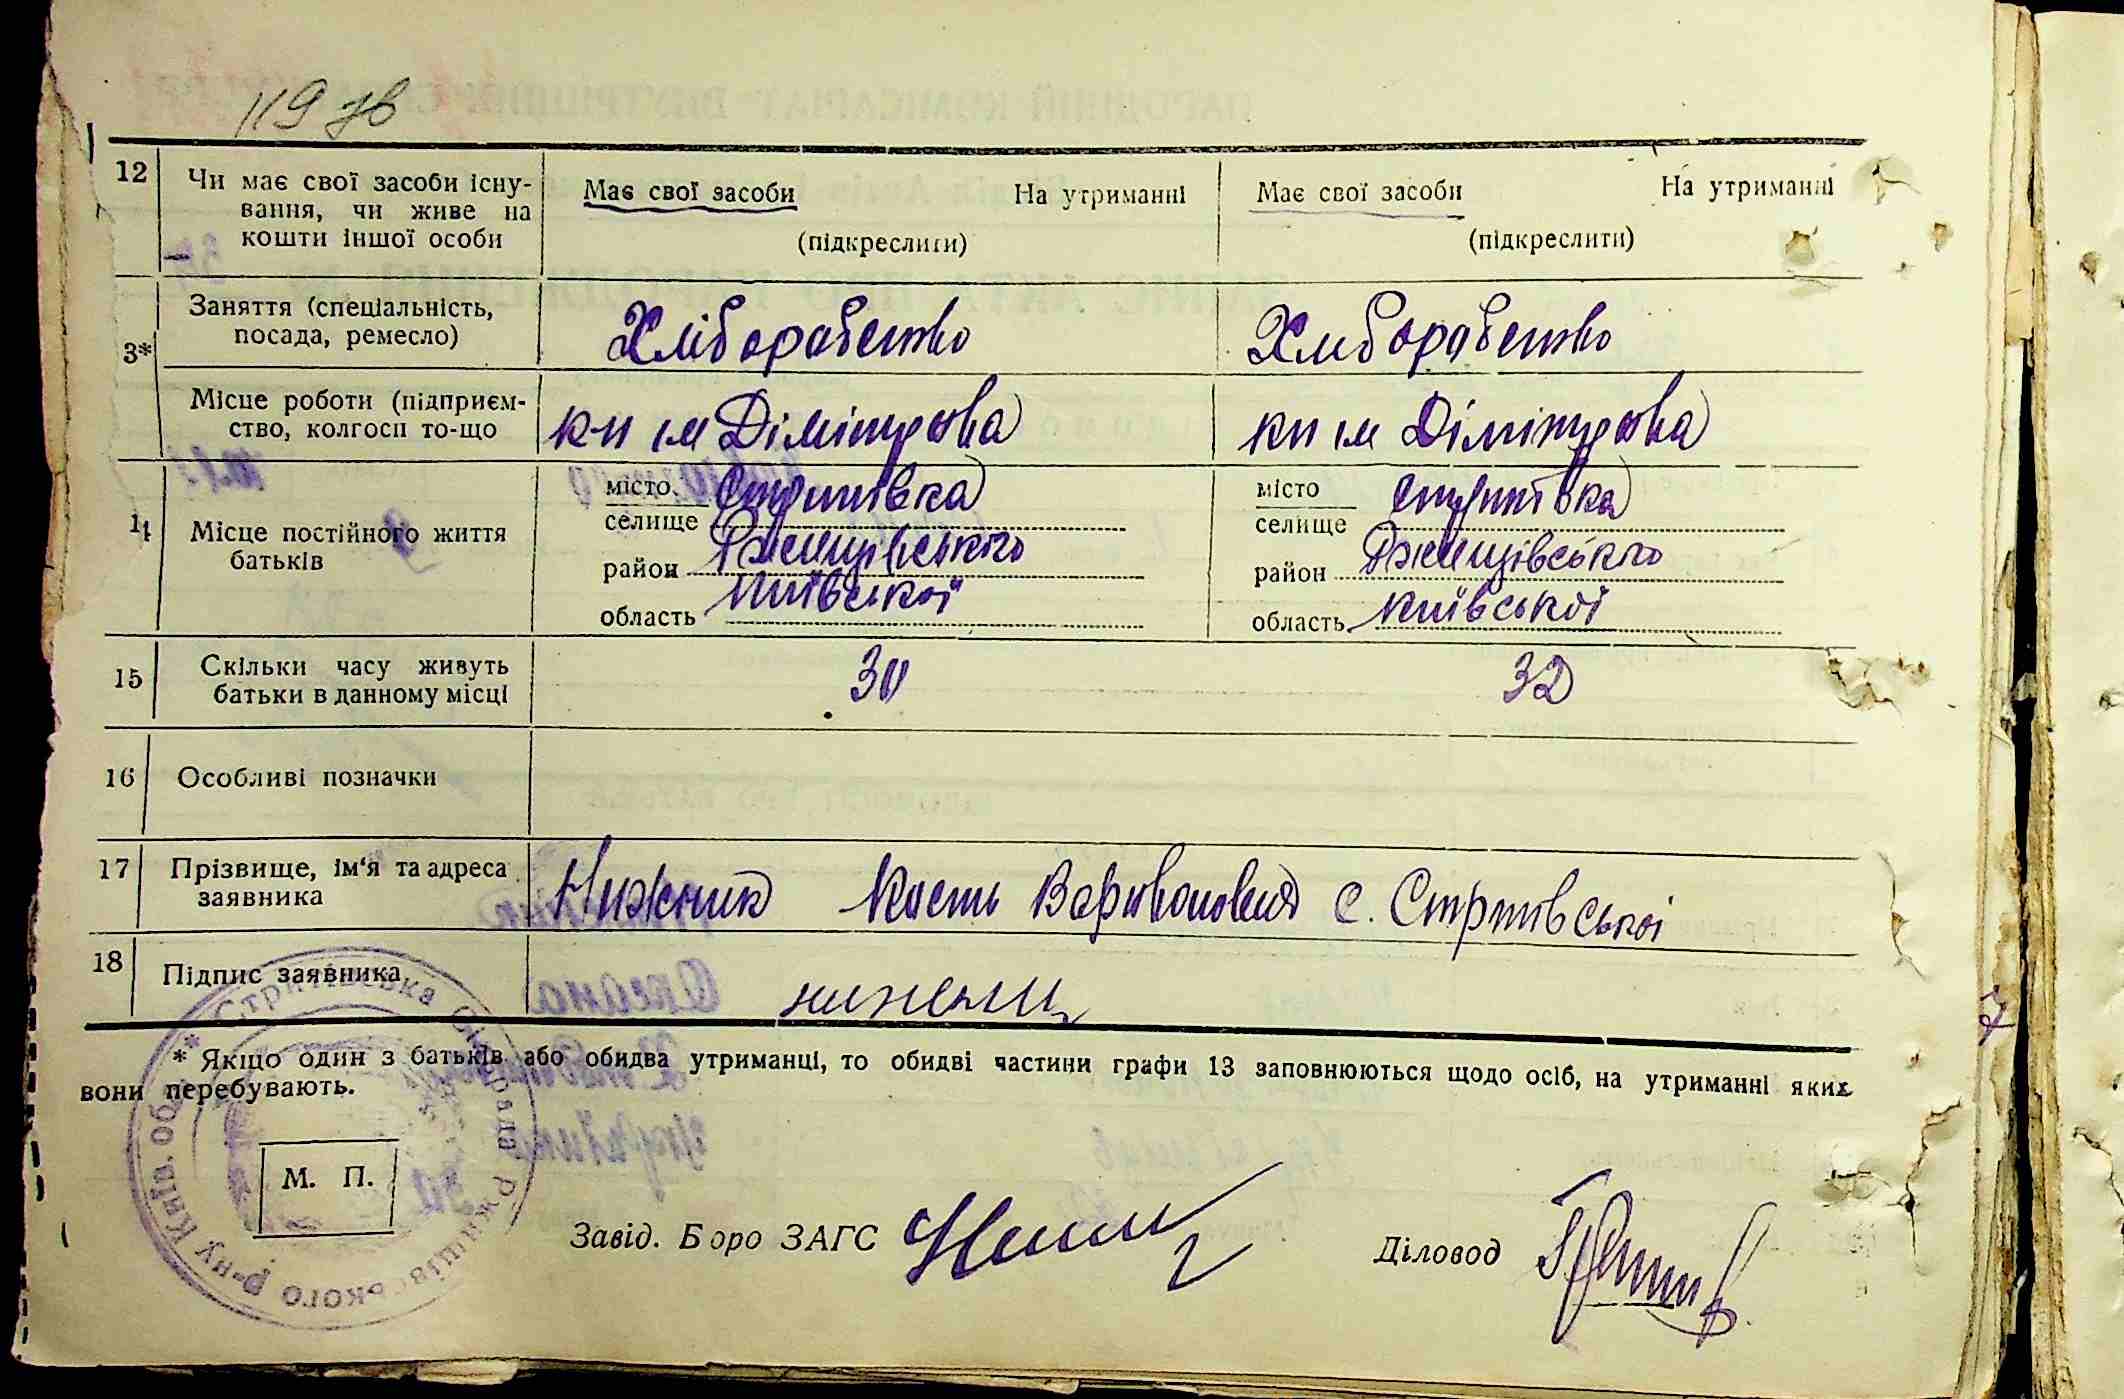 119 зв
12 Чи має свої засоби існу- Має свої засоби На утриманні Має свої засоби На утриманні
вання, чи живе на
кошти іншої особи (підкреслити) (підкреслити)
Заняття (спеціальність, Хліборобство Хліборобство
3* посада, ремесло)
Місце роботи (підприєм- кп ім Дімітрова кп ім Дімітрова
ство, колгосп то-що
місто Стритівка місто Стритівка
14 Місце постійного життя селище селище
батьків район Ржищівського район Ржищівського
область Київської область Київської
15 Скільки часу живуть 30 32
батьки в данному місці
16 Особливі позначки
17 Прізвище, ім'я та адреса Нижник Кость Варивонович с. Стритівської
заявника
18 Підпис заявника нижник
* Якщо один з батьків або обидва утриманці, то обидві частини графи 13 заповнюються щодо осіб, на утриманні яких
вони перебувають.
М. П.
Завід. Бюро ЗАГС
Діловод
* Стритівська Сільрада Ржищівського р-ну Київ. обл. *